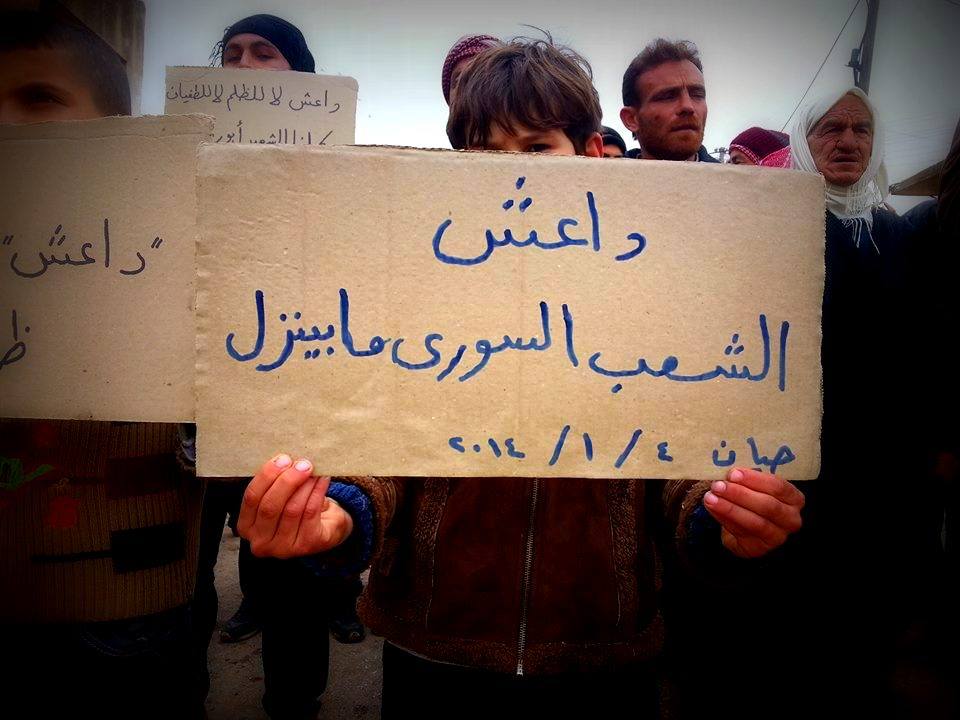 داعش لا للظلم لا للطغيان
"داعش"
داعش
الشعب السورى مابينزل
حيان ٤ / ١ / ٢٠١٤